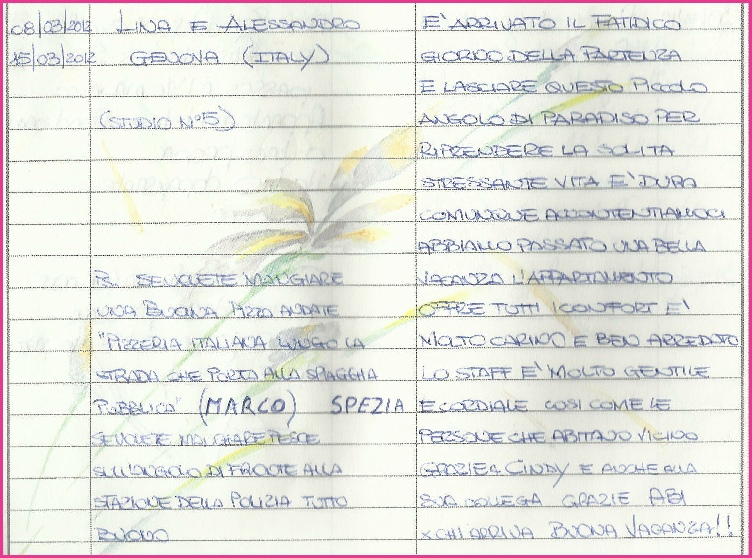 08/03/2012 LINA E ALESSANDRO
15/03/2012 GENOVA (ITALY)
(STUDIO N°5)
PS. SE VOLETE MANGIARE
UNA BUONA PIZZA ANDATE
"PIZZERIA ITALIANA LUNGO LA
STRADA CHE PORTA ALLA SPIAGGIA
PUBBLICA" (MARCO) SPEZIA
SE VOLETE MANGIARE PESCE
SULL'ANGOLO DI FRONTE ALLA
STAZIONE DELLA POLIZIA TUTTO
BUONO
E' ARRIVATO IL FATIDICO
GIORNO DELLA PARTENZA
E LASCIARE QUESTO PICCOLO
ANGOLO DI PARADISO PER
RIPRENDERE LA SOLITA
STRESSANTE VITA E' DURA
COMUNQUE ACCONTENTIAMOCI
ABBIAMO PASSATO UNA BELLA
VACANZA L'APPARTAMENTO
OFFRE TUTTI I CONFORT E'
MOLTO CARINO E BEN ARREDATO
LO STAFF E' MOLTO GENTILE
E CORDIALE COSI COME LE
PERSONE CHE ABITANO VICINO
GRAZIE A CINDY E ANCHE ALLA
SUA COLLEGA GRAZIE ABI
X CHI ARRIVA BUONA VACANZA!!